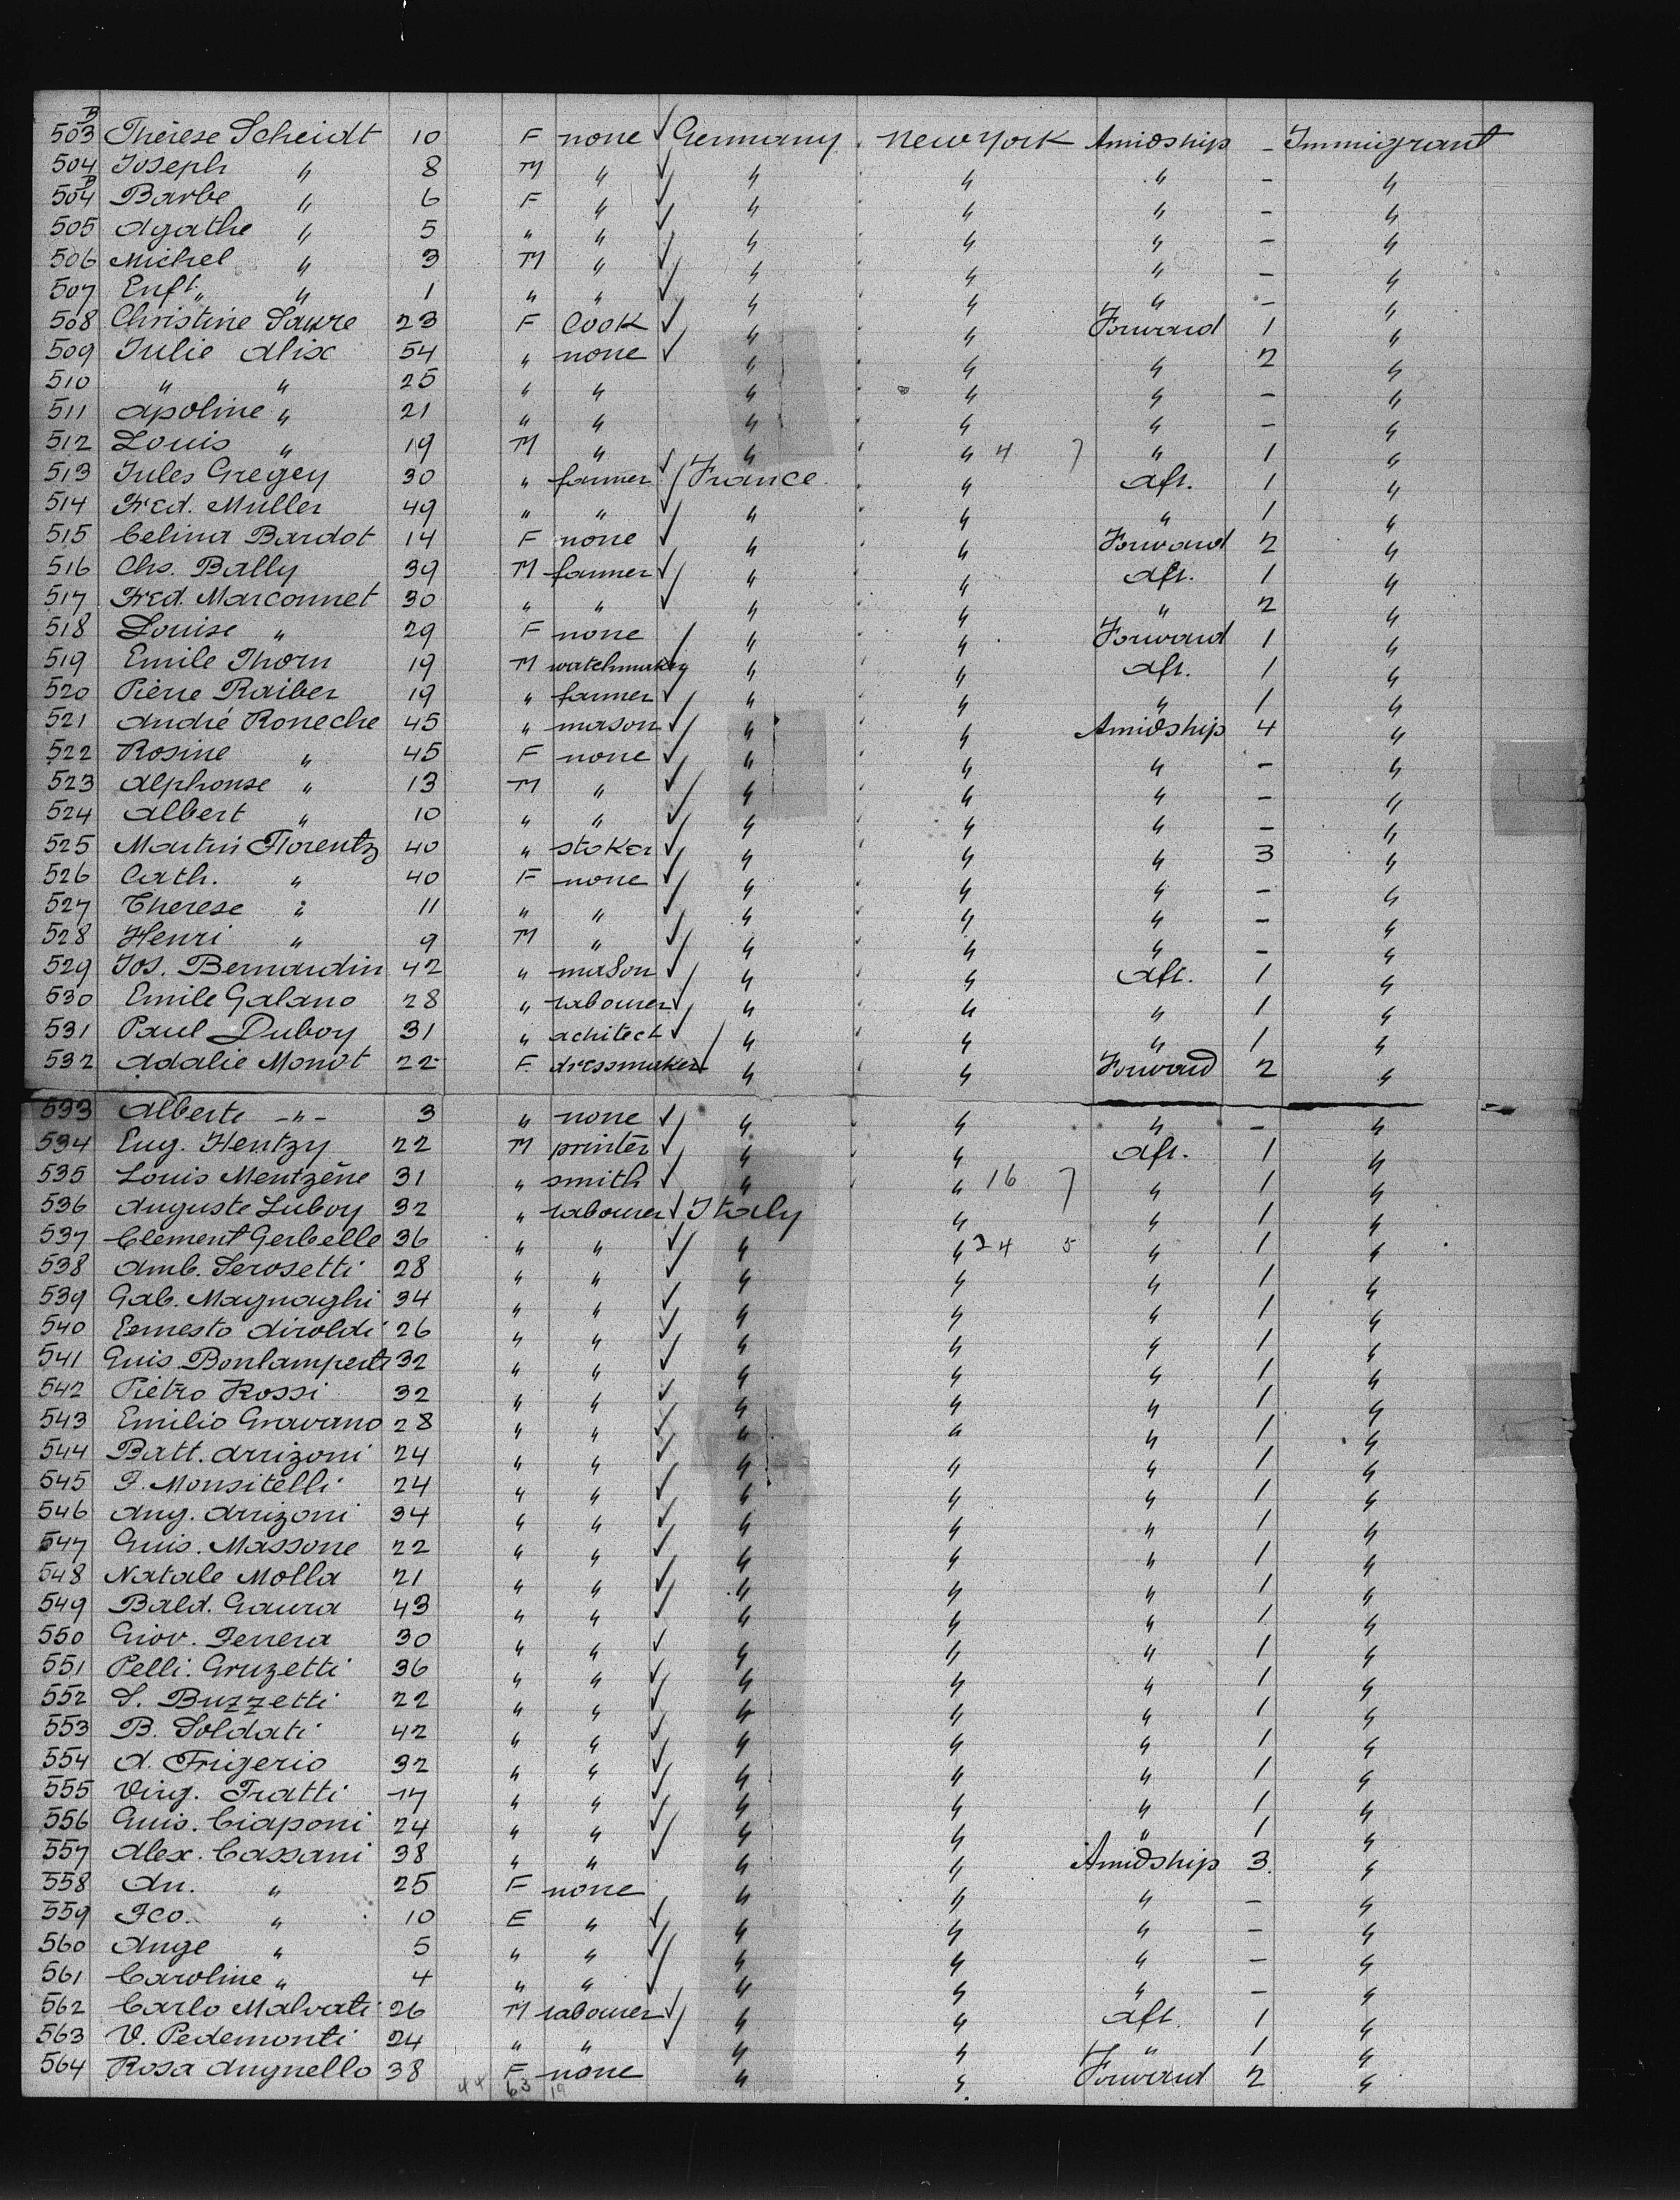 503 B Thérese Scheidt 10 F none ✓ Germany New York Amidship - Immigrant
504 Joseph " 8 M " ✓ " " " - "
504 B Barbe " 6 F " ✓ " " " - "
505 Agathe " 5 " " ✓ " " " - "
506 Michel " 3 M " ✓ " " " - "
507 Enft. " 1 " " ✓ " " " - "
508 Christine Saure 23 F Cook ✓ " " Forward 1 "
509 Julie Alix 54 " none ✓ " " " 2 "
510 " " 25 " " " " " - "
511 Apoline " 21 " " " " " - "
512 Louis " 19 M " " " 4 7 " 1 "
513 Jules Gregey 30 " farmer ✓ France " Aft. 1 "
514 Fred. Muller 49 " " ✓ " " " 1 "
515 Celina Bardot 14 F none ✓ " " Forward 2 "
516 Chs. Bally 39 M farmer ✓ " " Aft. 1 "
517 Fred. Marconnet 30 " " ✓ " " " 2 "
518 Louise " 29 F none " " Forward 1 "
519 Emile Thorn 19 M watchmaker ✓ " " Aft. 1 "
520 Pièrre Raiber 19 " farmer ✓ " " " 1 "
521 André Roneche 45 " mason ✓ " " Amidship 4 "
522 Rosine " 45 F none ✓ " " " - "
523 Alphonse " 13 M " ✓ " " " - "
524 Albert " 10 " " ✓ " " " - "
525 Martin Florentz 40 " stoker ✓ " " " 3 "
526 Cath. " 40 F none ✓ " " " - "
527 Therese " 11 " " ✓ " " " - "
528 Henri " 9 M " ✓ " " " - "
529 Jos. Bernardin 42 " mason ✓ " " Aft. 1 "
530 Emile Galano 28 " labourer ✓ " " " 1 "
531 Paul Duboy 31 " achitect ✓ " " " 1 "
532 Adalie Monot 22 F dressmaker ✓ " " Forward 2 "
533 Alberte -"- 3 " none ✓ " " " - "
534 Eug. Hentzy 22 M printer ✓ " " Aft. 1 "
535 Louis Mentzène 31 " smith ✓ " " 16 7 " 1 "
536 Auguste Luboy 32 " labourer ✓ Italy " " 1 "
537 Clement Gerbelle 36 " " ✓ " " 24 5 " 1 "
538 Amb. Serosetti 28 " " ✓ " " " 1 "
539 Gab. Magnaghi 34 " " ✓ " " " 1 "
540 Ernesto Airoldi 26 " " ✓ " " " 1 "
541 Guis. Bonlamperti 32 " " ✓ " " " 1 "
542 Piètro Rossi 32 " " ✓ " " " 1 "
543 Emilio Gravano 28 " " ✓ " " " 1 "
544 Batt. Arrizoni 24 " " ✓ " " " 1 "
545 F. Monsitelli 24 " " ✓ " " " 1 "
546 Ang. Arrizoni 34 " " ✓ " " " 1 "
547 Guis. Massone 22 " " ✓ " " " 1 "
548 Natale Molla 21 " " ✓ " " " 1 "
549 Bald. Gaura 43 " " ✓ " " " 1 "
550 Giov. Ferrera 30 " " ✓ " " " 1 "
551 Pelli. Gruzetti 36 " " ✓ " " " 1 "
552 S. Buzzetti 22 " " ✓ " " " 1 "
553 B. Soldati 42 " " ✓ " " " 1 "
554 A. Frigerio 32 " " ✓ " " " 1 "
555 Virg. Fratti 17 " " ✓ " " " 1 "
556 Guis. Ciaponi 24 " " ✓ " " " 1 "
557 Alex. Cassani 38 " " ✓ " " Amidship 3 "
558 An. " 25 F none " " " - "
559 Fco. " 10 F " ✓ " " " - "
560 Ange " 5 " " ✓ " " " - "
561 Caroline " 4 " " ✓ " " " - "
562 Carlo Malvati 26 M labourer ✓ " " Aft. 1 "
563 V. Pedemonti 24 " " ✓ " " " 1 "
564 Rosa Angnello 38 F none " " Forward 2 "
44 63 19